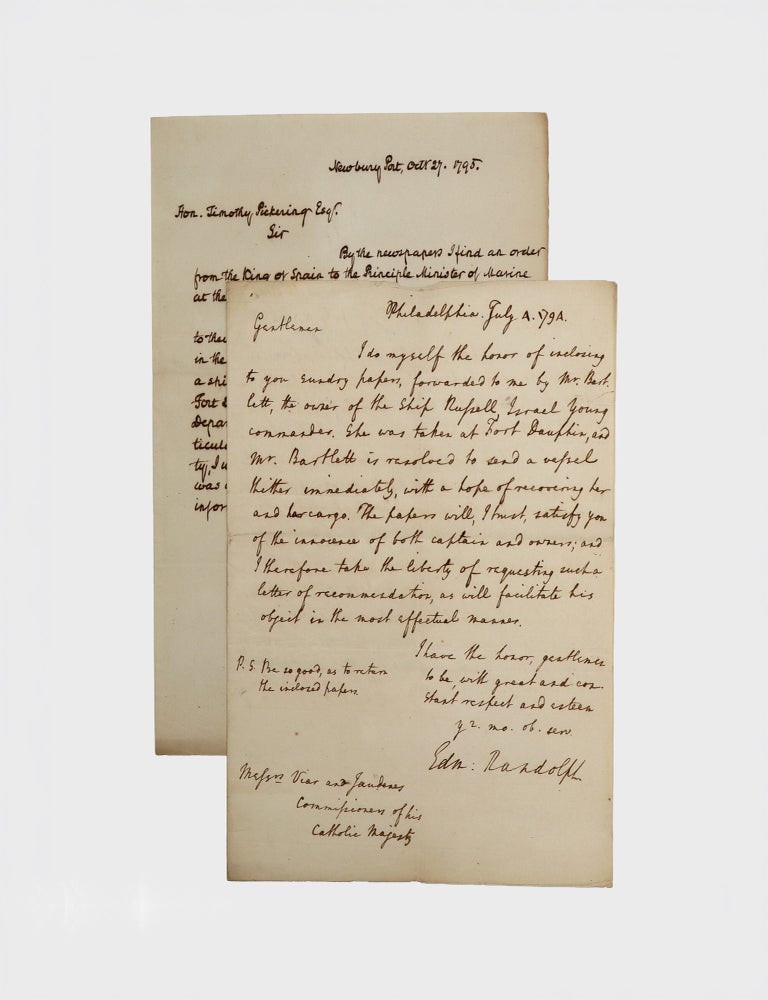 Newbury Port, Octr 27. 1795.
Hon. Timothy Pickering Esqr.
Sir
By the newspapers I find an order
from the King of Spain to the Principle Minister of Marine
at the
to the
in the
a shi
Fort
Depar
ticul
ty, I
was
infor
Philadelphia. July 4. 1794.
Gentlemen
I do myself the honor of inclosing
to you sundry papers, forwarded to me by Mr. Bart-
lett, the owner of the Ship Russell, Israel Young
commander. She was taken at Fort Dauphin, and
Mr. Bartlett is resolved to send a vessel
thither immediately, with a hope of recovering her
and her cargo. The papers will, I trust, satisfy you
of the innocence of both captain and owners; and
I therefore take the liberty of requesting such a
letter of recommendation, as will facilitate his
object in the most effectual manner.
I have the honor, gentlemen
to be, with great and con-
stant respect and esteem
yr. mo. ob. serv.
Edm: Randolph
P.S. Be so good, as to return
the inclosed papers
Messrs Viar and Jaudenes
Commissioners of his
Catholic Majesty